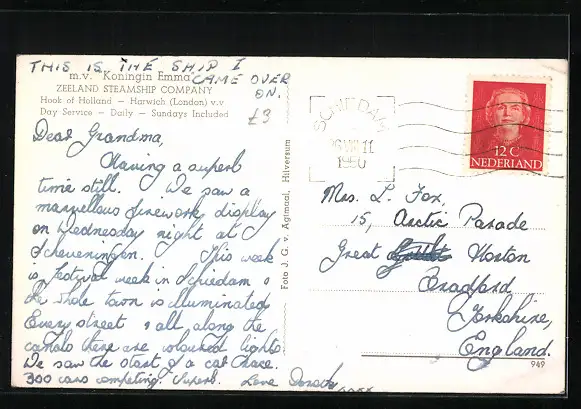 THIS IS THE SHIP I
CAME OVER
ON.
m.v. "Koningin Emma"
ZEELAND STEAMSHIP COMPANY
Hook of Holland – Harwich (London) v.v
Day Service – Daily – Sundays Included
£3
Dear Grandma,
Having a superb
time still. We saw a
marvellous firework display
on Wednesday night at
Scheveningen. This week
is festival week in Schiedam &
the whole town is illuminated
Every street & all along the
canals there are coloured lights
We saw the start of a car race.
300 cars competing. Superb. Love
Foto J. G. v. Agtmaal, Hilversum
SCHIEDAM
1950
12 C
NEDERLAND
Mrs. L. Fox,
15, Arctic Parade
Great Horton
Bradford
Yorkshire,
England.
949